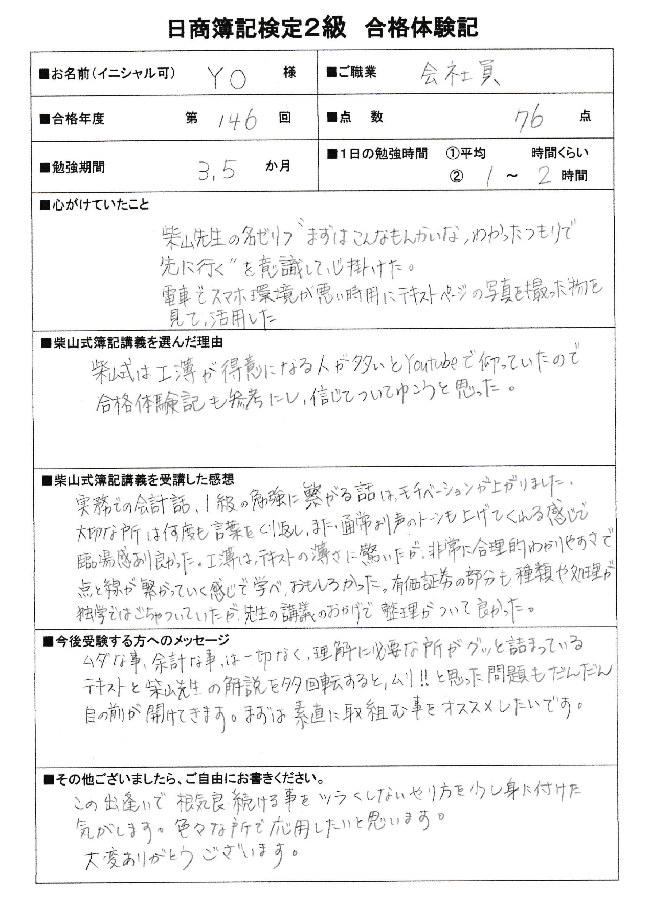 日商簿記検定2級 合格体験記
■お名前(イニシャル可) YO 様
■ご職業 会社員
■合格年度 第 146 回
■点 数 76 点
■勉強期間 3.5 か月
■1日の勉強時間 ①平均 時間くらい
② 1 ～ 2 時間
■心がけていたこと
柴山先生の名ゼリフ"まずはこんなもんかいな,わかったつもりで
先に行く"を意識して心掛けた。
電車でスマホ環境が悪い時用にテキストページの写真を撮った物を
見て,活用した
■柴山式簿記講義を選んだ理由
柴山式は工簿が得意になる人が多いとYoutubeで仰っていたので
合格体験記も参考にし,信じてついてゆこうと思った。
■柴山式簿記講義を受講した感想
実務での会計話、1級の勉強に繋がる話は,モチベーションが上がりました.
大切な所は何度も言葉をくり返し,また,通常より声のトーンも上げてくれる感じで
臨場感あり良かった。工簿は,テキストの薄さに驚いたが,非常に合理的わかりやすさで
点と線が繋がっていく感じで学べ,おもしろかった。有価証券の部分も種類や処理が
独学ではごちゃついていたが,先生の講義のおかげで整理がついて良かった。
■今後受験する方へのメッセージ
ムダな事,余計な事,は一切なく,理解に必要な所がグッと詰まっている
テキストと柴山先生の解説を多回転すると,ムリ!!と思った問題もだんだん
目の前が開けてきます。まずは素直に取組む事をオススメしたいです。
■その他ございましたら、ご自由にお書きください。
この出逢いで根気良続ける事をツラくしないやり方を少し身に付けた
気がします。色々な所で応用したいと思います。
大変ありがとうございます。